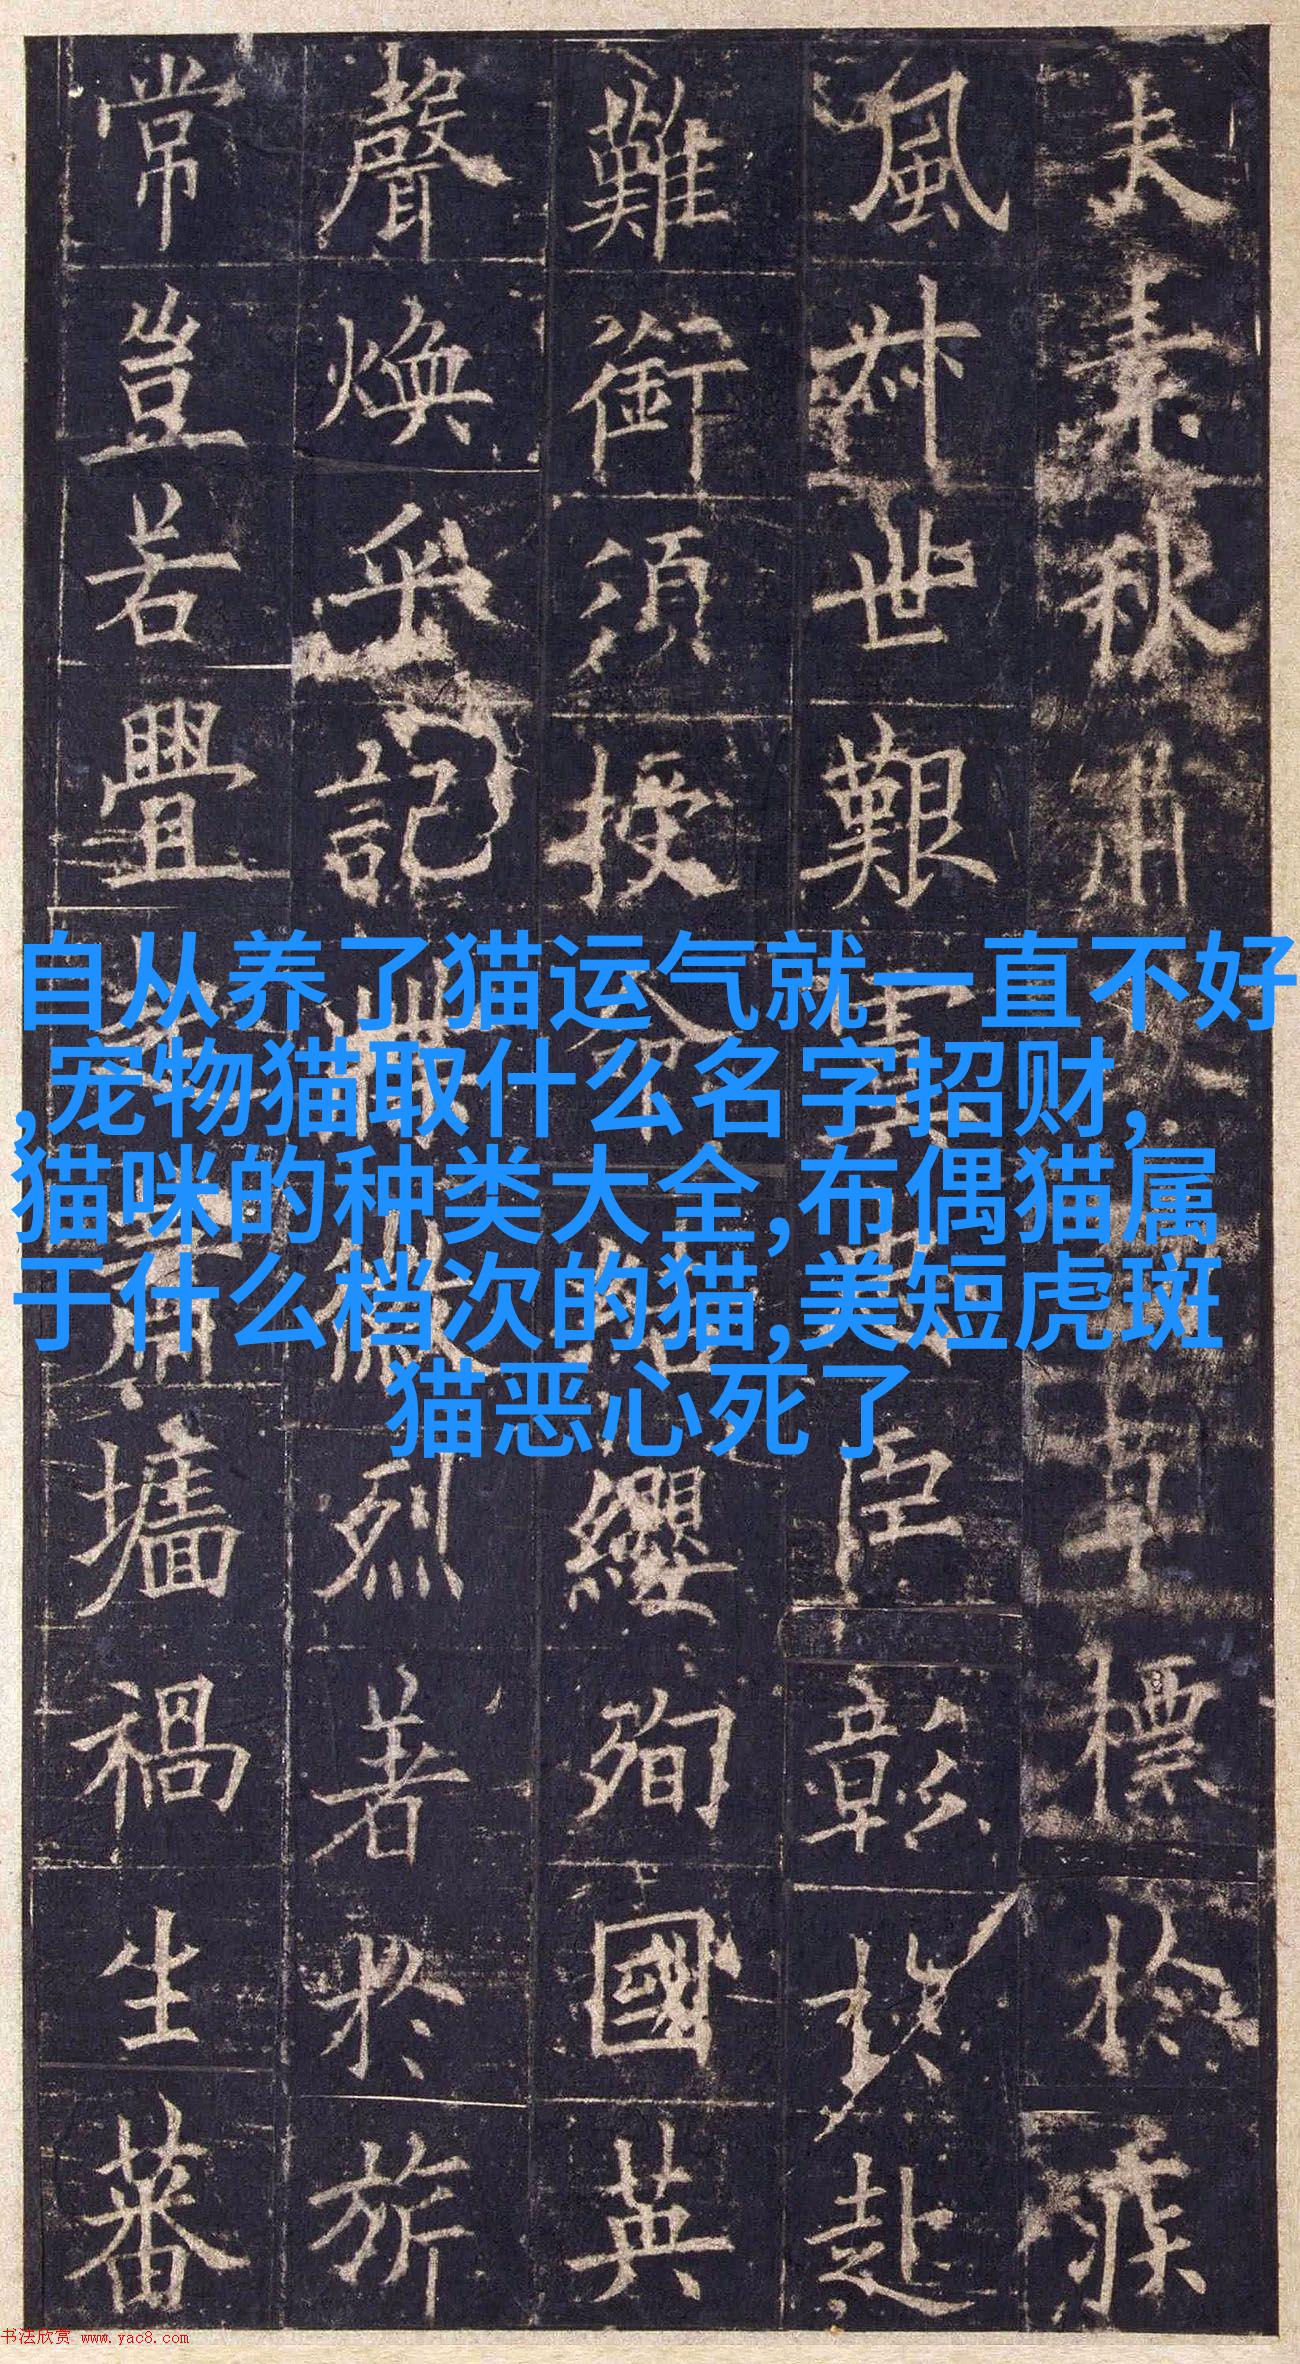 夫素秋肅草標於疾
風叔世艱虞臣彰於赴
難銜須授命結纓殉國英
聲煥乎記諜徽烈著於旂
常豈若亹起蕭墻禍生蕃
自从养了猫运气就一直不好
,宠物猫取什么名字招财,
猫咪的种类大全,布偶猫属
于什么档次的猫,美短虎斑
猫恶心死了
书法欣赏 www.yac8.com